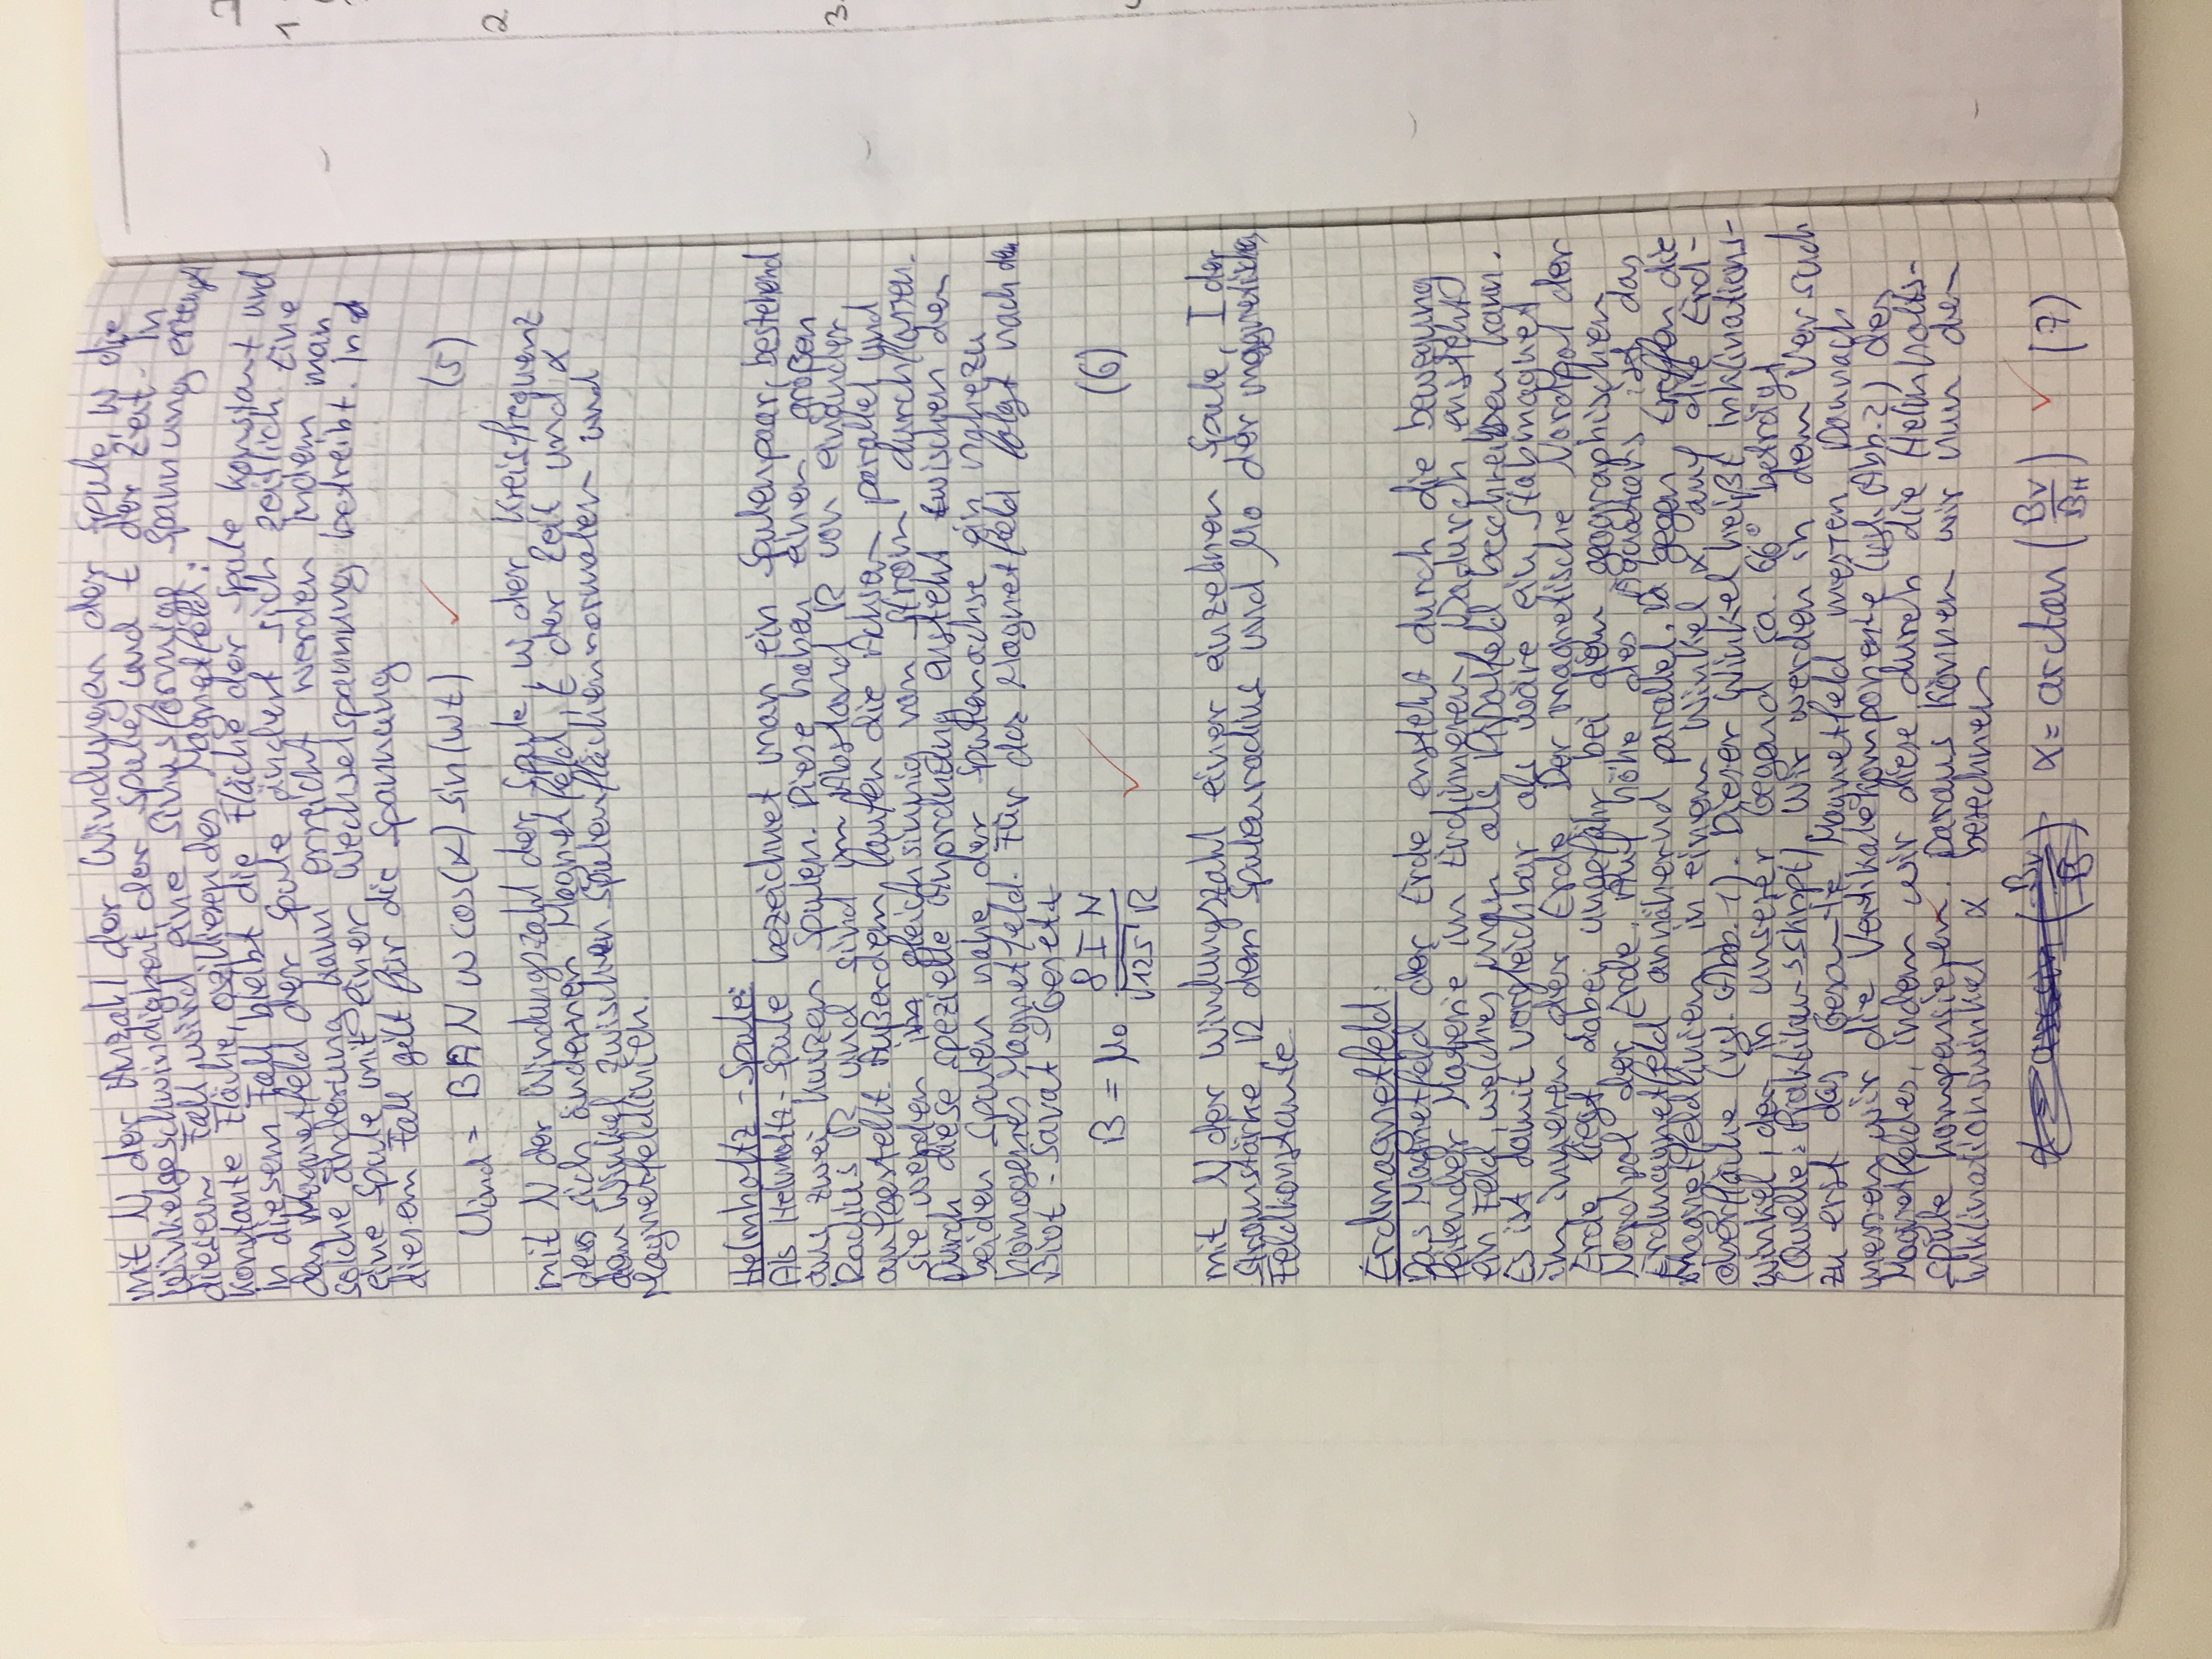 mit N der Anzahl der Windungen der Spule, w die
Winkelgeschwindigkeit der Spule, und t der Zeit. In
diesem Fall wird eine sinusförmige Spannung erzeugt
Konstante Fläche, oszillierendes Magnetfeld:
In diesem Fall bleibt die Fläche der Spule konstant und
das Magnetfeld der Spule ändert sich zeitlich. Eine
solche änderung kann erreicht werden, indem man
eine Spule mit einer Wechselspannung betreibt. In
diesem Fall gilt für die Spannung
Uind = B A N w cos(α) sin(wt) ✓ (5)
mit N der Windungszahl der Spule, w der Kreisfrequenz
des sich ändernen Magnetfeld, t der Zeit und α
dem Winkel zwischen Spulenflächennormalen und
Magnetfeldlinien.
Helmholtz-Spule:
Als Helmholtz-Spule bezeichnet man ein Spulenpaar, bestehend
aus zwei kurzen Spulen. Diese haben einen großen
Radius R und sind im Abstand R von einander
aufgestellt. Außerdem laufen die Achsen parallel und
sie werden gleichsinnig von Strom durchflossen.
Durch diese spezielle Anordnung ensteht zwischen den
beiden Spulen nahe der Spulenachse ein nahezu
homogenes Magnetfeld. Für das Magnetfeld folgt nach dem
Biot-Savat-Gesetz
B = μ₀ 8 I N / √125 R ✓ (6)
mit N der Windungszahl einer einzelnen Spule, I der
Stromstärke, R dem Spulenradius und μ₀ der magnetischen
Feldkonstante.
Erdmagnetfeld:
Das Magnetfeld der Erde ensteht durch die bewegung
leitender Materie im Erdinneren. Dadurch ensteht
ein Feld, welches man als Dipolfeld beschreiben kann.
Es ist damit vergleichbar als wäre ein Stabmagnet
im inneren der Erde. Der magnetische Nordpol der
Erde liegt dabei ungefähr bei dem geographischen
Nordpol der Erde. Auf höhe des Äquators ist das
Erdmagnetfeld annähernd parallel. Da gegen treffen die
Magnetfeldlinien in einem Winkel α auf die Erd-
oberfläche (vgl. Abb. 1). Dieser Winkel heißt Inklinations-
winkel, der in unserer Gegend ca. 66° beträgt
(Quelle: Praktikumsskript). Wir werden in dem Versuch
zu erst das Gesamte Magnetfeld messen. Dannach
messen wir die Vertikalekomponente (vgl. Abb. 2) des
Magnetfeldes, indem wir diese durch die Helmholts-
spule kompensieren. Daraus können wir nun den
Inklinationswinkel α berechnen
α = arctan (BV / BH) ✓ (7)
1
2.
3.